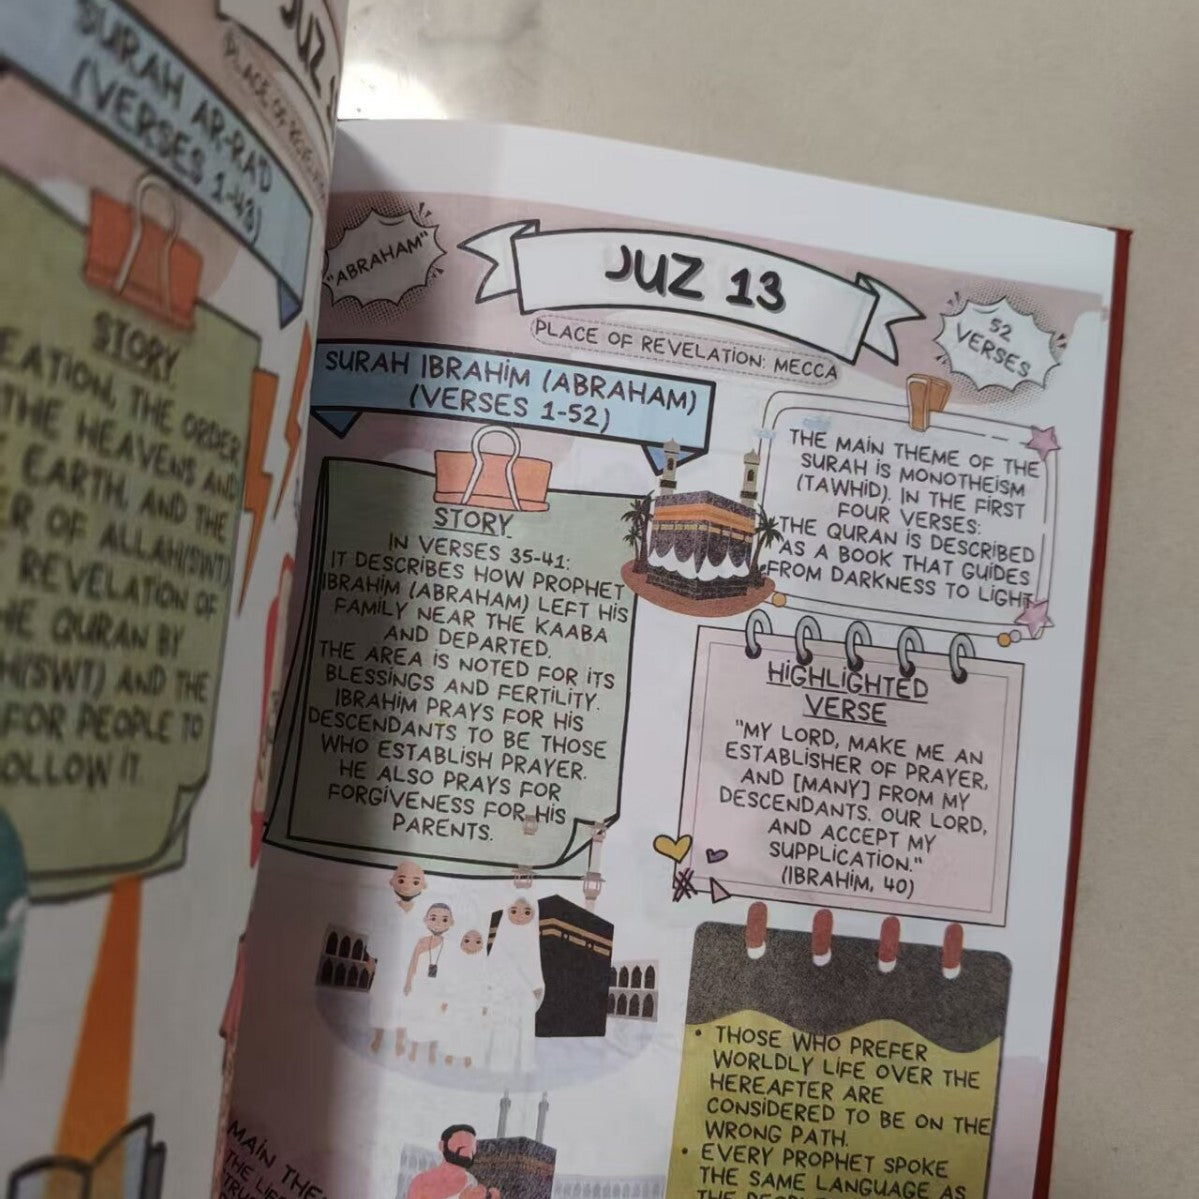 SURAH AR-RAD
(VERSES 1-43)
STORY
THE ORDER
THE HEAVENS AND
EARTH, AND THE
OF ALLAH(SWT)
REVELATION OF
QURAN BY
AND THE
FOR PEOPLE TO
IT.
JUZ 13
"ABRAHAM"
PLACE OF REVELATION: MECCA
52
VERSES
SURAH IBRAHIM (ABRAHAM)
(VERSES 1-52)
STORY
IN VERSES 35-41:
IT DESCRIBES HOW PROPHET
IBRAHIM (ABRAHAM) LEFT HIS
FAMILY NEAR THE KAABA
AND DEPARTED.
THE AREA IS NOTED FOR ITS
BLESSINGS AND FERTILITY.
IBRAHIM PRAYS FOR HIS
DESCENDANTS TO BE THOSE
WHO ESTABLISH PRAYER.
HE ALSO PRAYS FOR
FORGIVENESS FOR HIS
PARENTS.
THE MAIN THEME OF THE
SURAH IS MONOTHEISM
(TAWHID). IN THE FIRST
FOUR VERSES:
THE QURAN IS DESCRIBED
AS A BOOK THAT GUIDES
FROM DARKNESS TO LIGHT.
HIGHLIGHTED
VERSE
"MY LORD, MAKE ME AN
ESTABLISHER OF PRAYER,
AND [MANY] FROM MY
DESCENDANTS. OUR LORD,
AND ACCEPT MY
SUPPLICATION."
(IBRAHIM, 40)
• THOSE WHO PREFER
WORLDLY LIFE OVER THE
HEREAFTER ARE
CONSIDERED TO BE ON THE
WRONG PATH.
• EVERY PROPHET SPOKE
THE SAME LANGUAGE AS
MAIN
THE